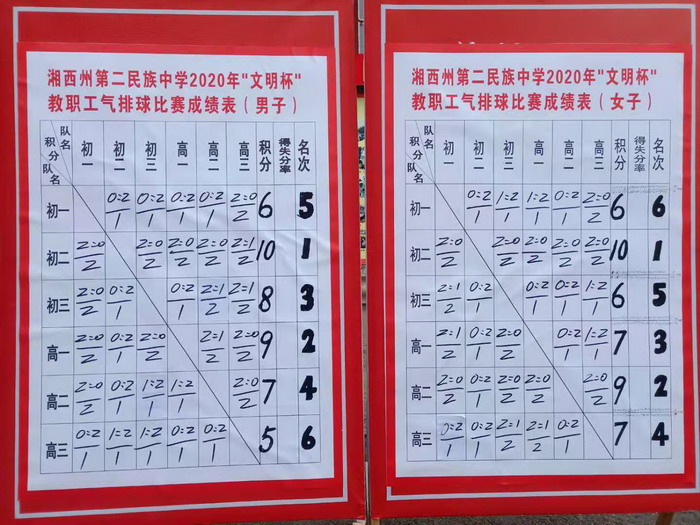 湘西州第二民族中学2020年"文明杯"
教职工气排球比赛成绩表（男子）
队名 积分 队名 初一 初二 初三 高一 高二 高三 积分 得失分率 名次
初一 0:2/1 0:2/1 0:2/1 0:2/1 2:0/2 6 5
初二 2:0/2 2:0/2 2:0/2 2:0/2 2:1/2 10 1
初三 2:0/2 0:2/1 0:2/1 2:1/2 2:1/2 8 3
高一 2:0/2 0:2/1 2:0/2 2:1/2 2:0/2 9 2
高二 2:0/2 0:2/1 1:2/1 1:2/1 2:0/2 7 4
高三 0:2/1 1:2/1 1:2/1 0:2/1 0:2/1 5 6
湘西州第二民族中学2020年"文明杯"
教职工气排球比赛成绩表（女子）
队名 积分 队名 初一 初二 初三 高一 高二 高三 积分 得失分率 名次
初一 0:2/1 1:2/1 1:2/1 0:2/1 2:0/2 6 6
初二 2:0/2 2:0/2 2:0/2 2:0/2 2:0/2 10 1
初三 2:1/2 0:2/1 0:2/1 0:2/1 1:2/1 6 5
高一 2:1/2 0:2/1 2:0/2 0:2/1 1:2/1 7 3
高二 2:0/2 0:2/1 2:0/2 2:0/2 2:0/2 9 2
高三 0:2/1 0:2/1 2:1/2 2:1/2 0:2/1 7 4